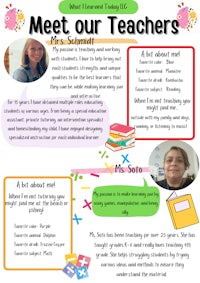 What I Learned Today LLC
Meet our Teachers
Mrs. Schmidt
My passion is teaching and working
with students. I love to help bring out
most students strengths, and unique
qualities to be the best learners that
they can be, while making learning fun
and interactive.
For 15 years I have obtained multiple roles educating
students in various ways. From being a special education
assistant, private tutoring, an intervention specialist
and homeschooling my child. I have enjoyed designing
specialized instruction for each individual learner.
A bit about me!
Favorite color: Blue
Favorite animal:
Favorite drink: Kombucha
Favorite subject: Reading
When I'm not tutoring you
might find me at...
outside with my family and dogs,
running, or listening to music!
Ms. Soto
A bit about me!
When I'm not tutoring you
might find me at the beach or
fishing!
Favorite color: Purple
Favorite animal: Dolphin
Favorite drink: Frozen Coffee
Favorite subject: Math
My passion is to make learning fun by
using games, manipulatives, and being
silly.
Ms. Soto has been teaching for over 23 years. She has
taught grades K-6 and really loves teaching 4th
grade. She helps struggling students by trying
various ideas and methods to ensure they
understand the material.